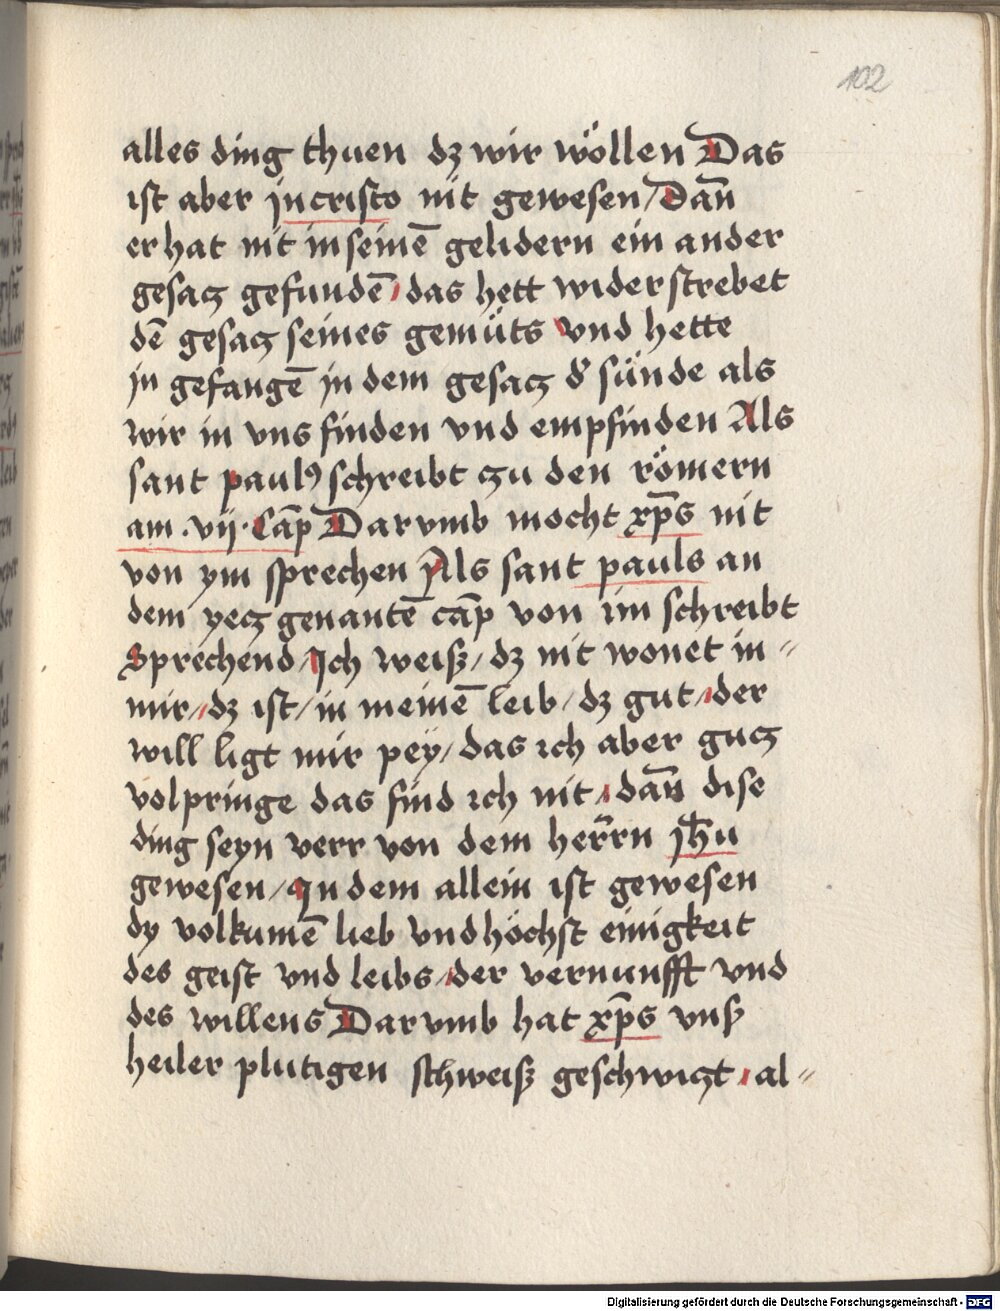 102
alles ding thuen dz wir wöllen Das
ist aber jn cristo nit gewesen / Dan̄
er hat nit in seinē gelidern ein ander
gesacz gefundē / das hett widerstrebet
dē gesacz seines gemüts vnd hette
jn gefangē jn dem gesacz d̄ sünde als
wir in vns finden vnd empfinden Als
sant paulꝰ schreibt zu den römern
am .vij. Cap̄ Darvmb mocht xp̄s nit
von ym sprechen Als sant pauls an
dem yecz genantē cap̄ von im schreibt
Sprechend / Ich weiß / dz nit wonet in =
mir / dz ist / in meinē leib / dz gut / der
will ligt mir pey / das ich aber gucz
volpringe das find ich nit / dan̄ dise
ding seyn verr von dem herr̄n jh̄u
gewesen / In dem allein ist gewesen
dy volkumē lieb vnd höchst einigkeit
des geist vnd leibs / der vernunfft vnd
des willens Darvmb hat xp̄s vnß
heiler plutigen schweiß geschwiczt / al =
Digitalisierung gefördert durch die Deutsche Forschungsgemeinschaft - DFG